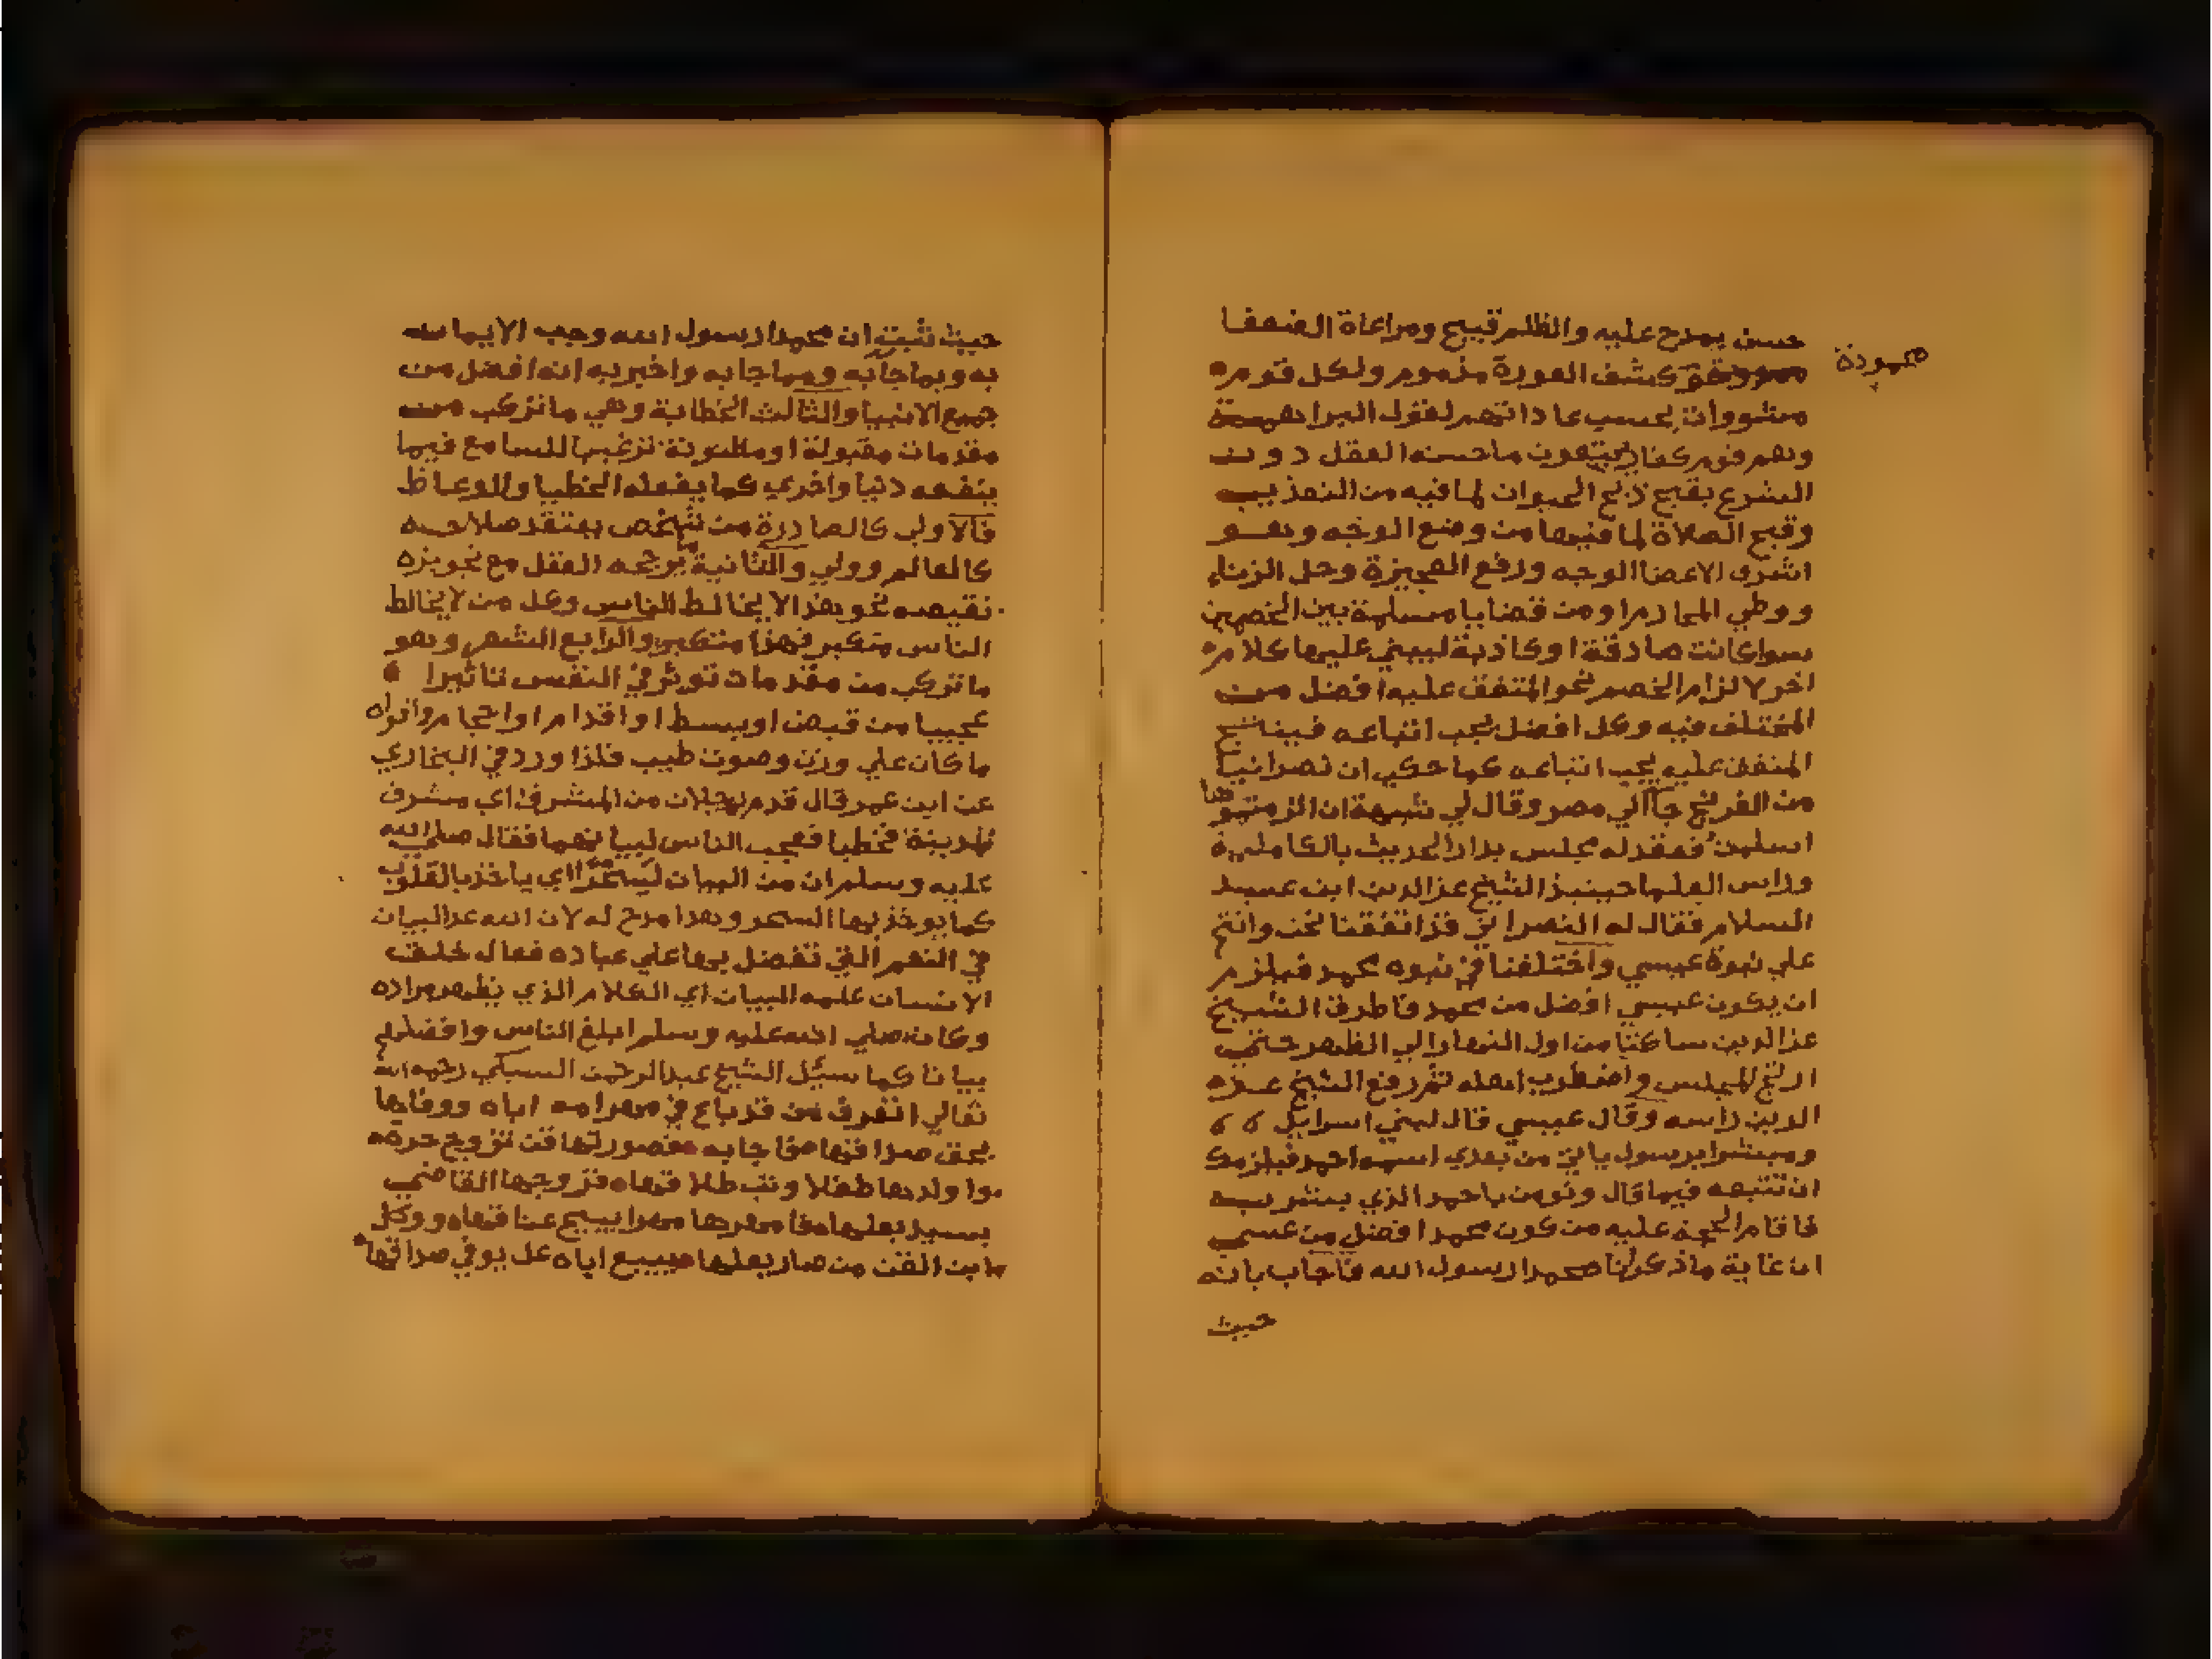 حسن يمدح عليه والظلم قبيح ومراعاة الضعفا
محمودة
كشف العورة مذموم ولكل قوم
مشووات بحسب عاداتهم لقول البراهمة
وهم قوم كفار يتبعون ما حسنه العقل دون
الشرع بقبح ذبح الحيوان لما فيه من التعذيب
وقبح الصلاة لما فيها من وضع الوجه وهو
اشرف الاعضا الوجه ورفع العجيزة وحل الزنا
ووطي المحارم او من قضايا مسلمة بين الخصمين
سوا كانت صادقة او كاذبة ليبني عليها كلام
اخر لالزام الخصم نحو المتفق عليه افضل من
المختلف فيه وكل افضل يجب اتباعه فينتج
المتفق عليه يجب اتباعه كما حكي ان نصرانيا
من الفرنج جا الي مصر وقال لي شبهة ان ازلتموها
اسلمت فعقد له مجلس بدار الحديث بالكاملية
وراس العلما حينيذ الشيخ عز الدين ابن عبد
السلام فقال له النصراني قد اتفقنا نحن وانتم
علي نبوة عيسي واختلفنا في نبوه محمد فيلزم
ان يكون عيسي افضل من محمد فاطرق الشيخ
عز الدين ساكتا من اول النهار الي الظهر حتي
ارتج المجلس واضطرب اهله ثم رفع الشيخ عز
الدين راسه وقال عيسي قال لبني اسرايل
ومبشرا برسول ياتي من بعدي اسمه احمد فيلزمك
ان تتبعه فيما قال وتومن باحمد الذي بشر به
فاقام الحجة عليه من كون محمد افضل من عيسي
ان غاية ما ذكر لنا محمدا رسول الله فاجاب بانه
حيث
حيث ثبت ان محمدا رسول الله وجب الايمان
به وبما جا به ومما جا به واخبر به انه افضل من
جميع الانبيا والثالث الخطابة وهي ما تركب من
مقدمات مقبولة او مظنونة ترغيبا للسامع فيما
ينفعه دنيا واخري كما يفعله الخطبا والوعاظ
فالاولي كالصادرة من شخص يعتقد صلاحه
كالعالم وولي والثانية يرجحه العقل مع تجويزه
نقيضه نحو هذا لا يخالط الناس وكل من لا يخالط
الناس متكبر فهذا متكبر والرابع الشعر وهو
ما تركب من مقدمات توثر في النفس تاثيرا
عجيبا من قبض او بسط او اقدام او احجام واقواه
ما كان علي وزن وصوت طيب فلذا ورد في البخاري
عن ابن عمر قال قدم رجلان من المشرق اي مشرق
المدينة فخطبا فعجب الناس لبيانهما فقال صلي الله
عليه وسلم ان من البيان لسحرا اي ياخذ بالقلوب
كما يوخذ بها السحر وهذا مدح له لان الله عد البيان
في النعم التي تفضل بها علي عباده فقال خلق
الانسان علمه البيان اي الكلام الذي يظهر مراده
وكان صلي الله عليه وسلم ابلغ الناس وافضلهم
بيانا كما سيل الشيخ عبد الرحمن السبكي رحمه الله
تعالي اتعرف من قد باع في مهرامه اباه ووفاها
بحق صداقها جا به فصورتها قن تزوج حرة
وولدها طفلا وتب طلاقها فتزوجها القاضي
بسيد بعلها مهرها مهرا يبيح عناقها ووكل
ابن القن من صار بعلها يبيع اباه عل يوفي صداقها